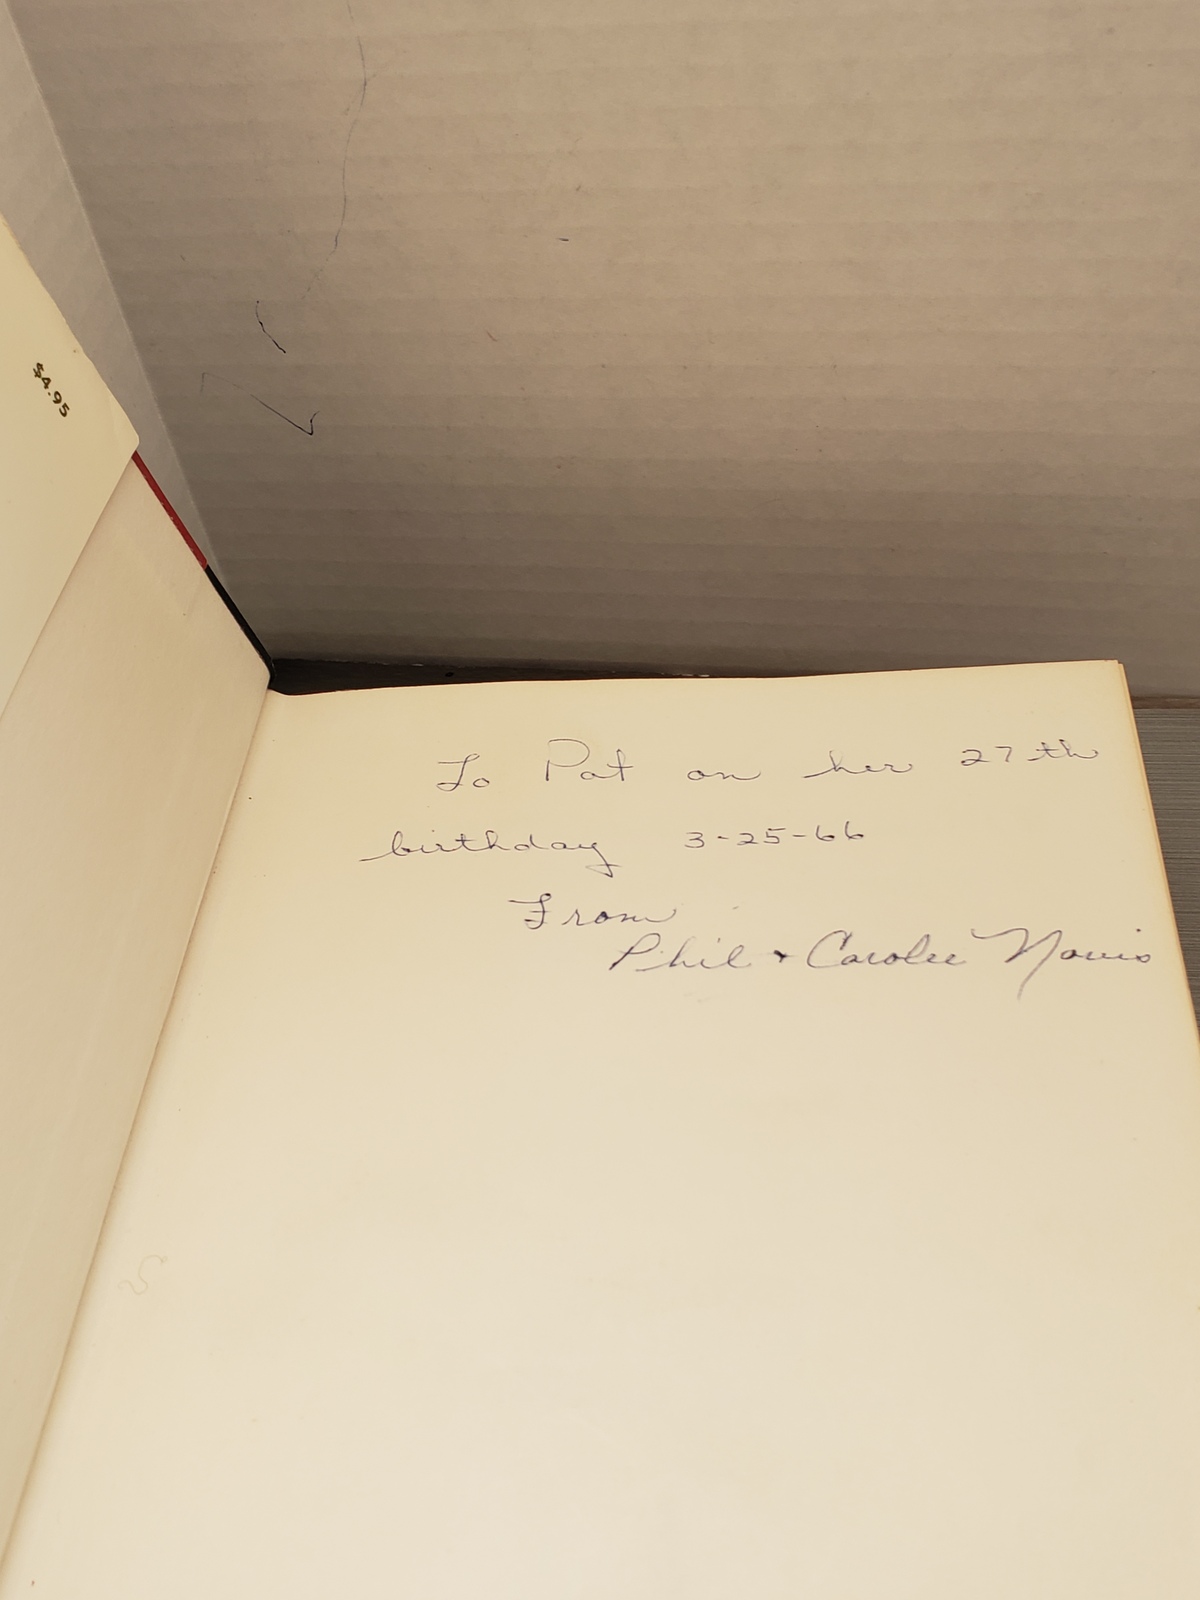 $4.95
To Pat on her 27th
birthday 3-25-66
From
Phil + Carolee Norris